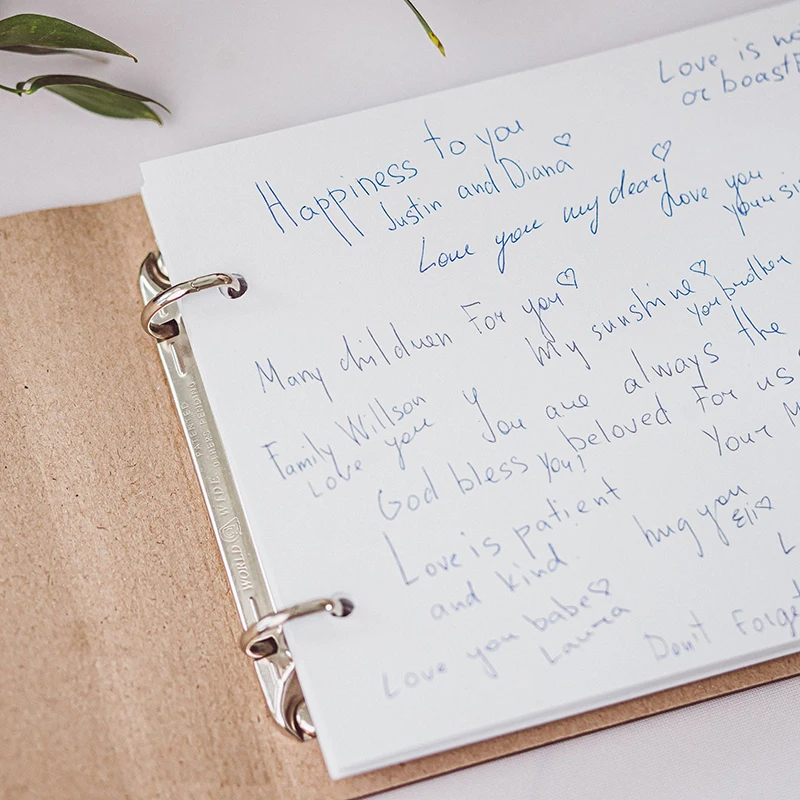 Love is
or boast
Happiness to you
Justin and Diana
Love you my dear
Love you
your
Many children For you
My sunshine
your brother
Family Willson
Love you
You are always the
beloved For us
God bless you!
Your
Love is patient
and kind.
hug you
Eli
Love you babe
Laura
Don't Forget
WORLD WIDE
OTHERS PENDING
PATENTED